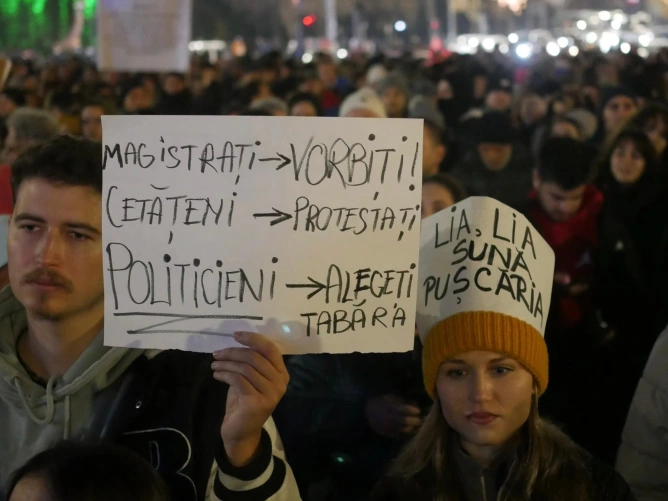 MAGISTRAȚI → VORBIȚI!
CETĂȚENI → PROTESTAȚI
POLITICIENI → ALEGEȚI
TABĂRA
LIA, LIA
SUNĂ
PUȘCĂRIA
B